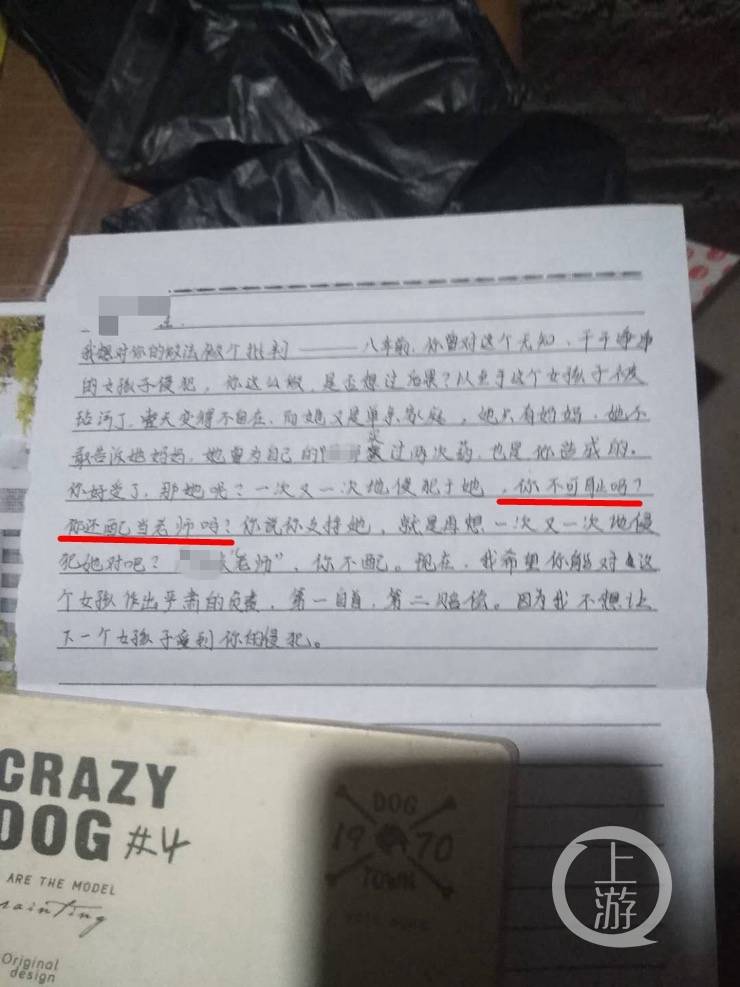 我想对你的做法做个批判——八年前，你曾对这个无知、干干净净
的女孩子侵犯，你这么做，是否想过后果？以至于这个女孩子不皮
玷污了，变得不自在，而她又是单亲家庭，她只有妈妈，她不
敢告诉她妈妈，她曾为自己的 过两次药，也是你造成的。
你好受了，那她呢？一次又一次地侵犯于她，你不可耻吗？
你还配当老师吗？你说你支持她，就是再想一次又一次地侵
犯她对吧？ "老师"，你不配。现在，我希望你能对这
个女孩作出严肃的负责，第一自首，第二赔偿。因为我不想让
下一个女孩子受到你的侵犯。
CRAZY
DOG #4
ARE THE MODEL
painting
Original
design
DOG
19 70
TOWN
上游